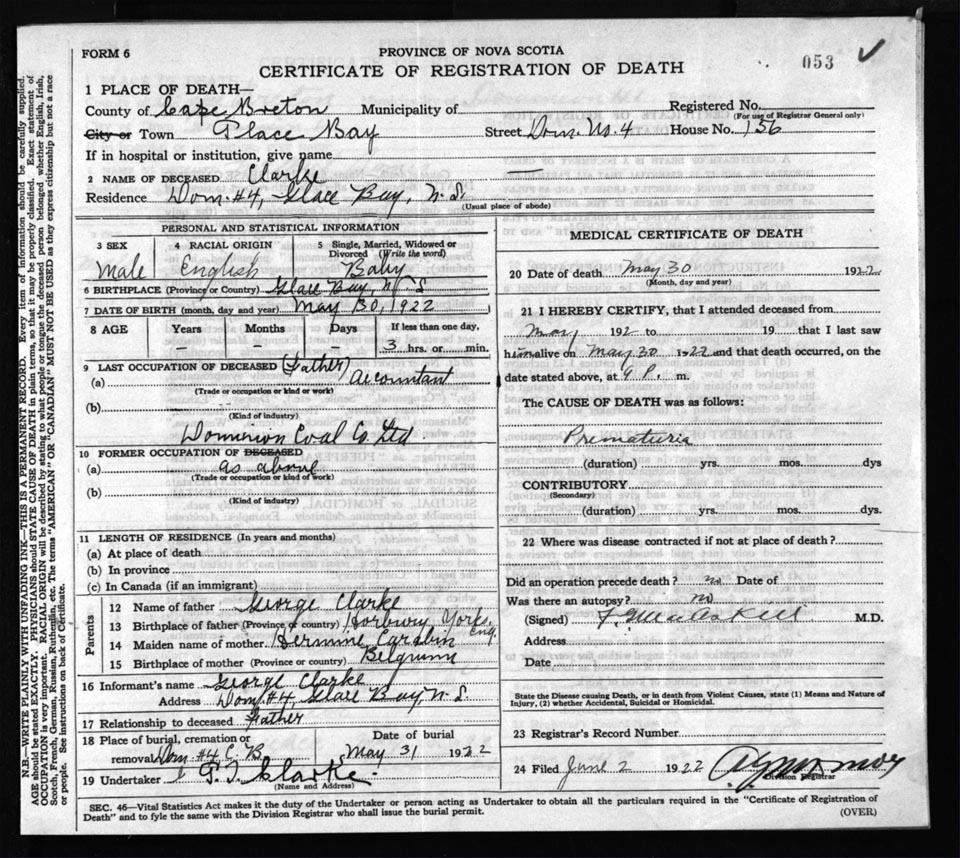 FORM 6
PROVINCE OF NOVA SCOTIA
CERTIFICATE OF REGISTRATION OF DEATH
053 ✓
1 PLACE OF DEATH—
County of Cape Breton Municipality of
Registered No.
(For use of Registrar General only)
City or Town Glace Bay Street Dom. No. 4 House No. 156
If in hospital or institution, give name
2 NAME OF DECEASED Clarke —
Residence Dom #4, Glace Bay, N. S.
(Usual place of abode)
PERSONAL AND STATISTICAL INFORMATION
3 SEX 4 RACIAL ORIGIN 5 Single, Married, Widowed or Divorced (Write the word)
Male English Baby
6 BIRTHPLACE (Province or Country) Glace Bay, N. S
7 DATE OF BIRTH (month, day and year) May 30, 1922
8 AGE Years Months Days If less than one day,
- - - 3 hrs. or min.
9 LAST OCCUPATION OF DECEASED (Father)
(a) Accountant
(Trade or occupation or kind or work)
(b)
(Kind of industry)
Dominion Coal Co. Ltd
10 FORMER OCCUPATION OF DECEASED
(a) as above
(Trade or occupation or kind of work)
(b)
(Kind of industry)
11 LENGTH OF RESIDENCE (In years and months)
(a) At place of death
(b) In province
(c) In Canada (if an immigrant)
Parents
12 Name of father George Clarke
13 Birthplace of father (Province or country) Horbury Yorks. Eng.
14 Maiden name of mother Hermine Carabin
15 Birthplace of mother (Province or country) Belgium
16 Informant's name George Clarke
Address Dom #4, Glace Bay N. S
17 Relationship to deceased Father
18 Place of burial, cremation or removal Dom #4 C. B Date of burial May 31 1922
19 Undertaker Clarke
(Name and Address)
MEDICAL CERTIFICATE OF DEATH
20 Date of death May 30 1922
(Month, day and year)
21 I HEREBY CERTIFY, that I attended deceased from
May 192 to 19 that I last saw
him alive on May 30 1922 and that death occurred, on the
date stated above, at P. m.
The CAUSE OF DEATH was as follows:
Prematuria
(duration) yrs. mos. dys
CONTRIBUTORY
(Secondary)
(duration) yrs. mos. dys.
22 Where was disease contracted if not at place of death?
Did an operation precede death? no Date of
Was there an autopsy? no
(Signed) M.D.
Address
Date
State the Disease causing Death, or in death from Violent Causes, state (1) Means and Nature of
Injury, (2) whether Accidental, Suicidal or Homicidal.
23 Registrar's Record Number
24 Filed June 2 1922
Division Registrar
SEC. 46—Vital Statistics Act makes it the duty of the Undertaker or person acting as Undertaker to obtain all the particulars required in the "Certificate of Registration of
Death" and to fyle the same with the Division Registrar who shall issue the burial permit.
(OVER)
N.B.—WRITE PLAINLY WITH UNFADING INK—THIS IS A PERMANENT RECORD. Every item of information should be carefully supplied.
AGE should be stated EXACTLY. PHYSICIANS should STATE CAUSE OF DEATH in plain terms, so that it may be properly classified. Exact statement of
OCCUPATION is very important. RACIAL ORIGIN will be described by stating to what people or tongue the deceased person belonged, whether English, Irish,
Scotch, French, German, Russian, Ruthenian, etc. The terms "AMERICAN" OR "CANADIAN" MUST NOT BE USED as they express citizenship but not a race
or people. See instructions on back of Certificate.